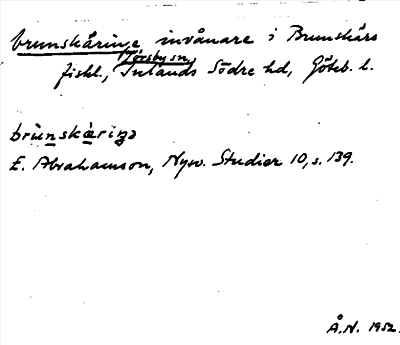 brunskäringe invånare i Brunskärs
Torsby sn,
fiskl., Inlands Södre hd, Göteb. l.
brùnskæ̀riŋə
E. Abrahamson, Nysv. Studier 10, s. 139.
Å.N. 1952.